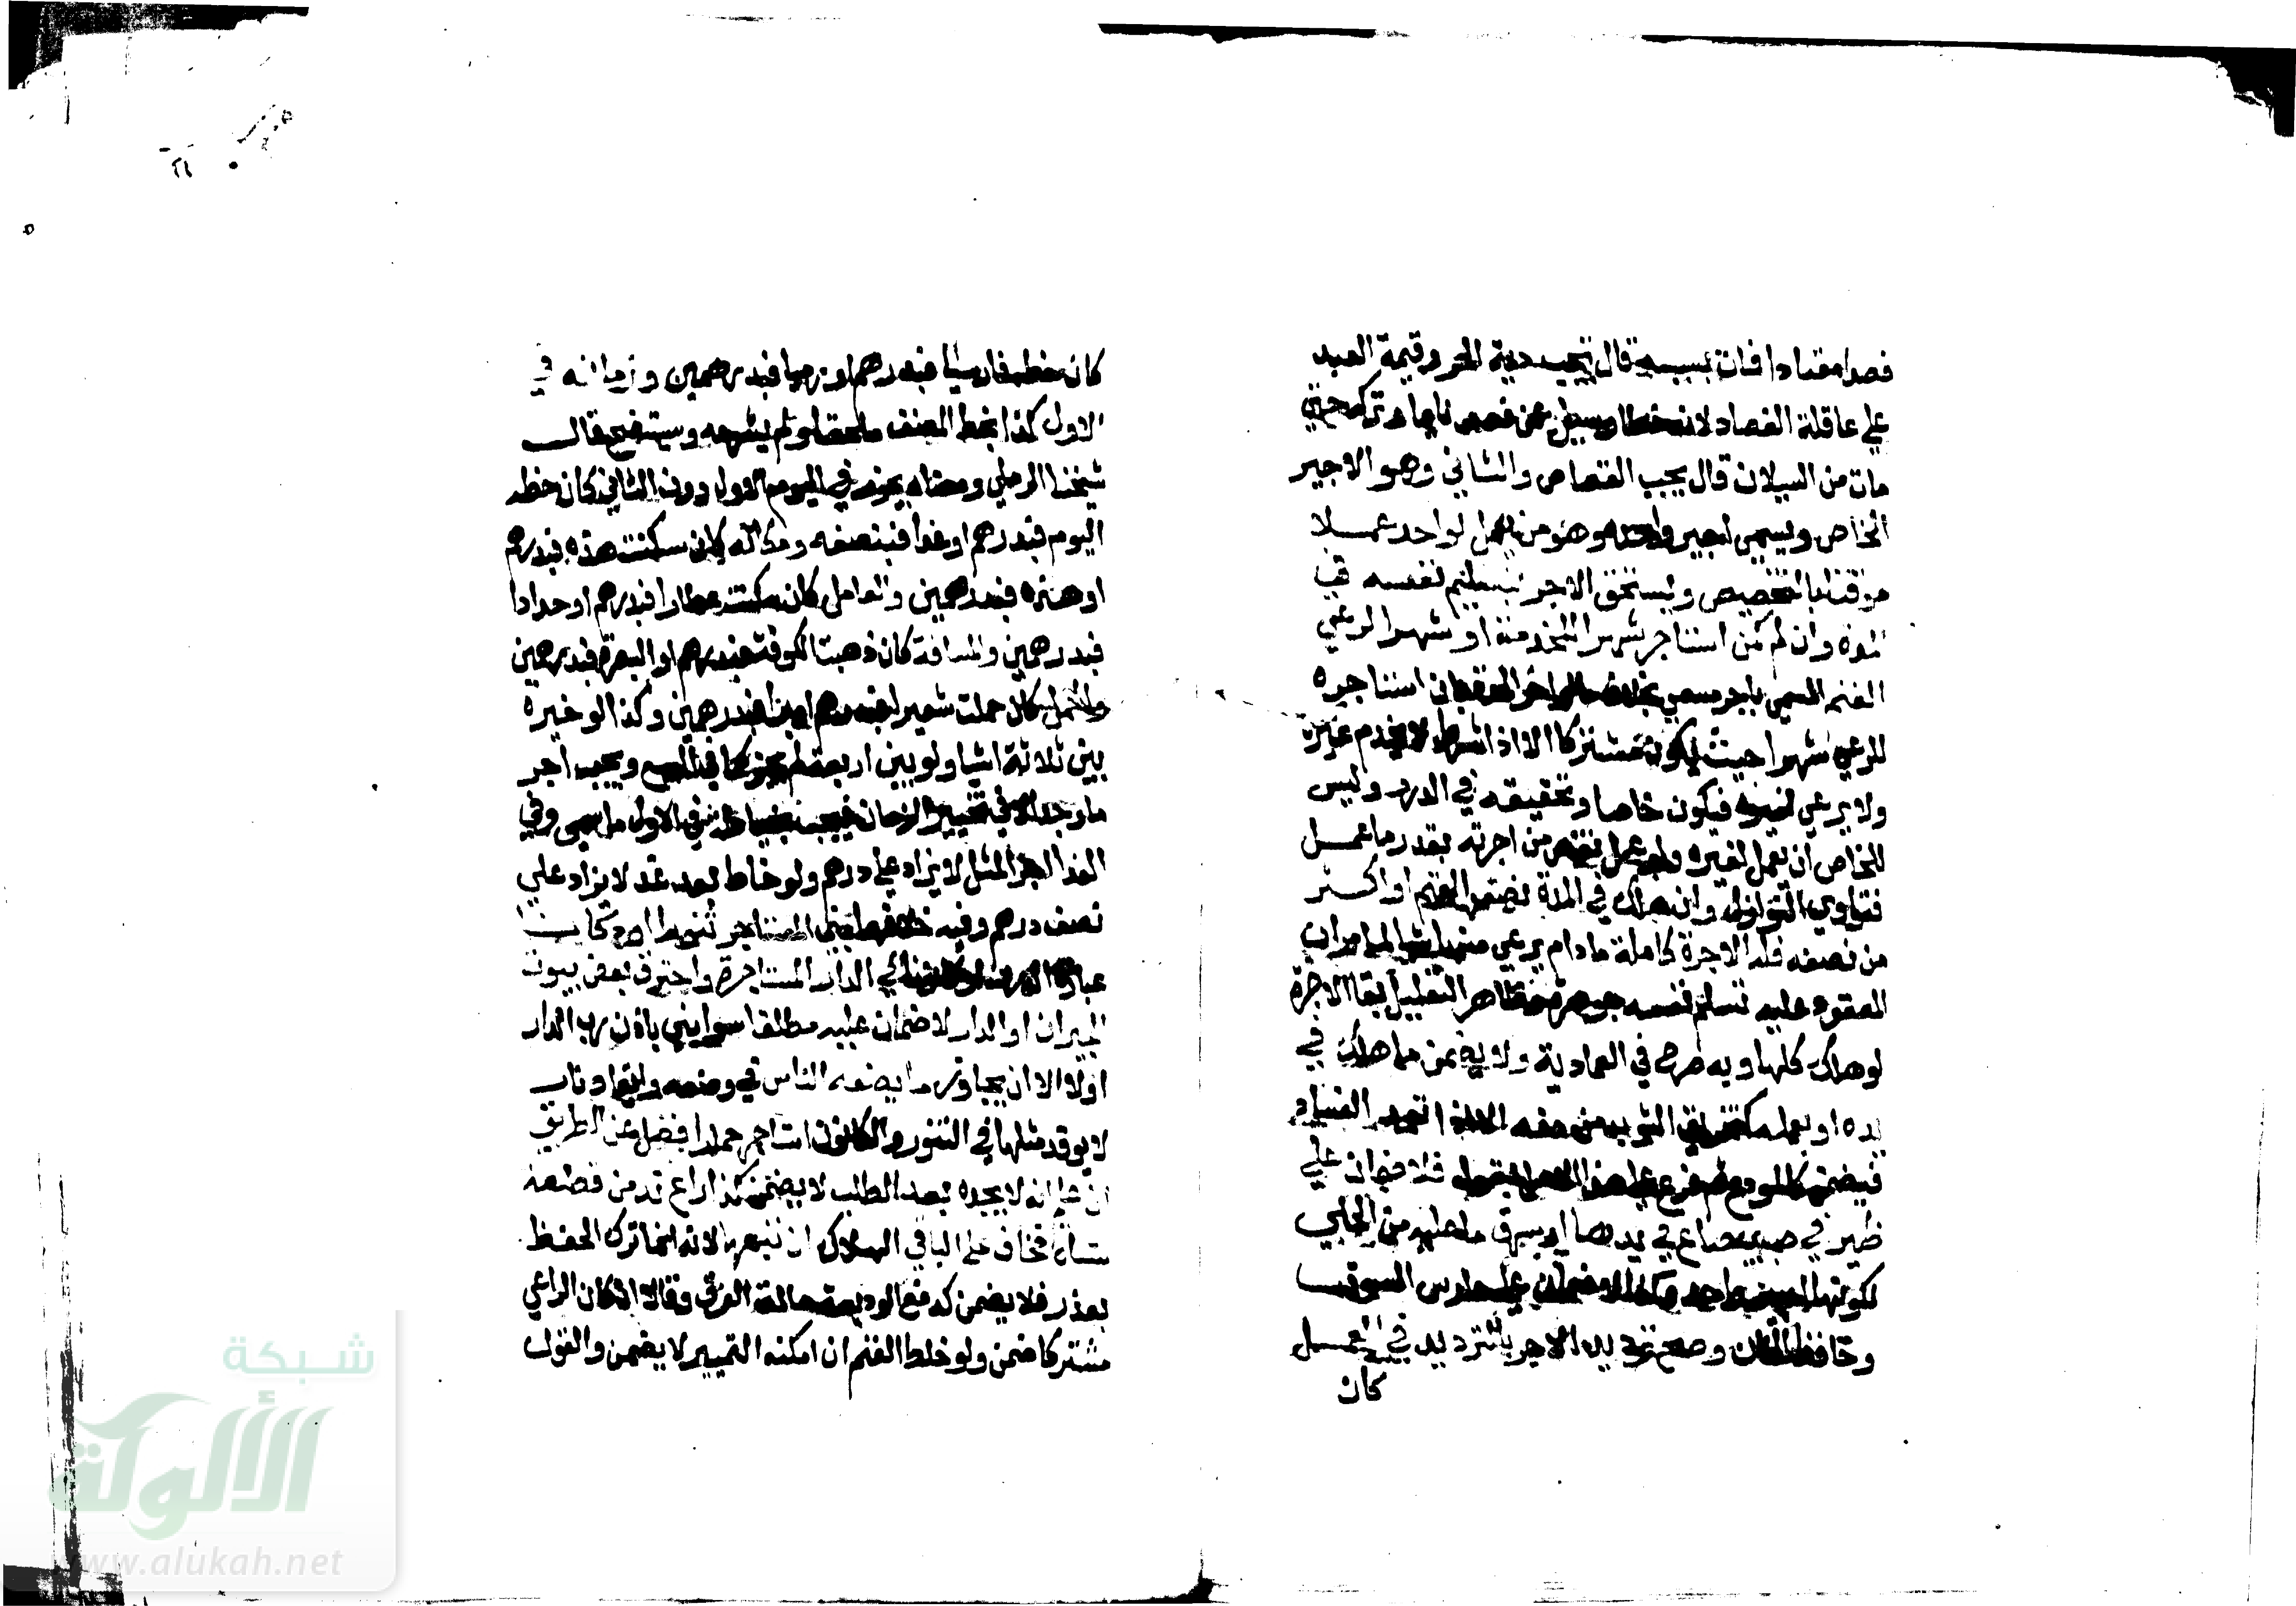 فصدا معتادا فمات بسببه قال تجب دية الحر وقيمة العبد
علي عاقلة الفصاد لانه خطا وسيل عمن فصد نايما وتركه حتي
مات من السيلان قال يجب القصاص والثاني وهو الاجير
الخاص ويسمي اجير واحد وهو من يعمل لواحد عملا
موقتا بالتخصيص ويستحق الاجر بتسليم نفسه في
المدة وان لم كمن استاجر شهرا للخدمة او شهرا لرعي
الغنم المسمي باجر مسمي بخلاف ما لو اخر المدة بان استاجره
للرعي شهرا حيث يكون مشتركا الا اذا شرط ان لا يخدم غيره
ولا يرعي لغيره فيكون خاصا وتحقيقه في الدرر وليس
للخاص ان يعمل لغيره ولو عمل نقص من اجرته بقدر ما عمل
فتاوي النوازل وان هلك في المدة نصف الغنم او اكثر
من نصفه فله الاجرة كاملة ما دام يرعي منها شيا لما مر ان
المعقود عليه تسليم نفسه جوهرة وظاهر التعليل بقا الاجرة
لو هلك كلها وبه صرح في العمادية ولا يضمن ما هلك في
يده او بعمله كتخريق الثوب من دقه الا اذا تعمد الفساد
فيضمن كالمودع ثم فرع علي هذا الاصل بقوله فلا ضمان علي
ظير في صبي ضاع في يدها او سرق ما عليه من الحلي
لكونها اجير واحد وكذا لا ضمان علي حارس السوق
وحافظ الخان وصح ترديد الاجر بالترديد في العمل
كان
كان خطه فارسيا فبدرهم او روميا فبدرهمين وزمانه في
الاول كذا بخط المصنف ملحقا ولم يشرحه وسيتضح قال
شيخنا الرملي ومعناه يجوز في اليوم الاول دون الثاني كان خطه
اليوم فبدرهم او غدا فبنصفه ومكانه كان سكنت هذه فبدرهم
او هذه فبدرهمين والعامل كان سكنت عطارا فبدرهم او حدادا
فبدرهمين والمسافة كان ذهبت للكوفة فبدرهم او البصرة فبدرهمين
والحمل كان حملت شعيرا فبدرهم او برا فبدرهمين وكذا لو خيره
بين ثلاثة اشيا ولو بين اربعة لم يجز كما في البيع ويجب اجر
ما وجد الا في تخيير الزمان فيجب بخياطته في الاول ما سمي وفي
الغد اجر المثل لا يزاد علي درهم ولو خاط بعد غد لا يزاد علي
نصف درهم وفيه خلافهما بني المستاجر تنورا او دكانا
عبارة الدرر او كانونا في الدار المستاجرة واحترق بعض بيوت
الجيران او الدار لا ضمان عليه مطلقا سوا بني باذن رب الدار
اولا الا ان يجاوز ما يصنعه الناس في وضعه وايقاد نار
لا يوقد مثلها في التنور والكانون استاجر حمارا فضل عن الطريق
ان علم انه لا يجده بعد الطلب لا يضمن كذا راع ند من قطيعه
شاة فخاف علي الباقي الهلاك ان تبعها لانه انما ترك الحفظ
بعذر فلا يضمن كدفع الوديعة حالة الغرق وقالا ان كان الراعي
مشتركا ضمن ولو خلط الغنم ان امكنه التمييز لا يضمن والقول
شبكة
الألوكة
www.alukah.net